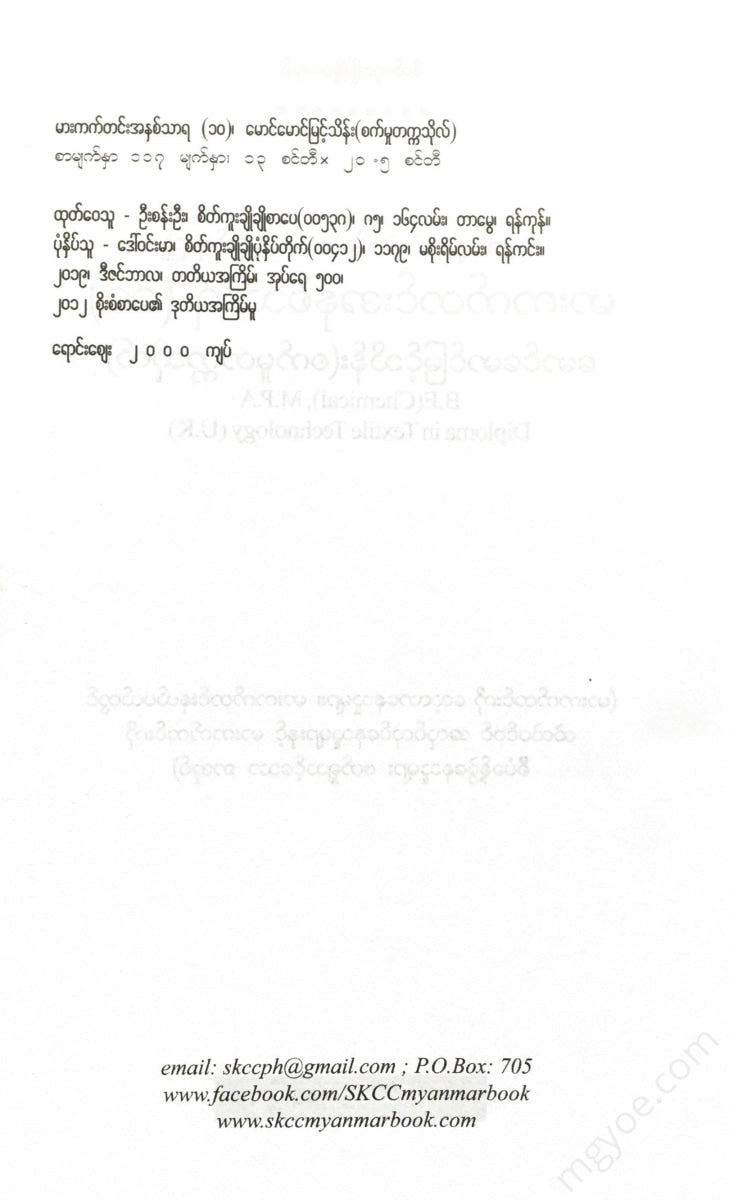 မားကက်တင်းအနှစ်သာရ (၁၀)၊ မောင်မောင်မြင့်သိန်း(စက်မှုတက္ကသိုလ်)
စာမျက်နှာ ၁၁၇ မျက်နှာ၊ ၁၃ စင်တီ× ၂၀.၅ စင်တီ
ထုတ်ဝေသူ - ဦးစန်းဦး၊ စိတ်ကူးချိုချိုစာပေ(၀၀၅၃၈)၊ ၈၅၊ ၁၆၄လမ်း၊ တာမွေ၊ ရန်ကုန်။
ပုံနှိပ်သူ - ဒေါ်ဝင်းမာ၊ စိတ်ကူးချိုချိုပုံနှိပ်တိုက်(၀၀၄၁၂)၊ ၁၁၉၅၊ မစိုးရိမ်လမ်း၊ ရန်ကင်း။
၂၀၁၉၊ ဒီဇင်ဘာလ၊ တတိယအကြိမ်၊ အုပ်ရေ ၅၀၀၊
၂၀၁၂ စိုးစံစာပေ၏ ဒုတိယအကြိမ်မူ
ရောင်းစျေး ၂၀၀၀ ကျပ်
email: skccph@gmail.com ; P.O.Box: 705
www.facebook.com/SKCCmyanmarbook
www.skccmyanmarbook.com
mgyoe.com